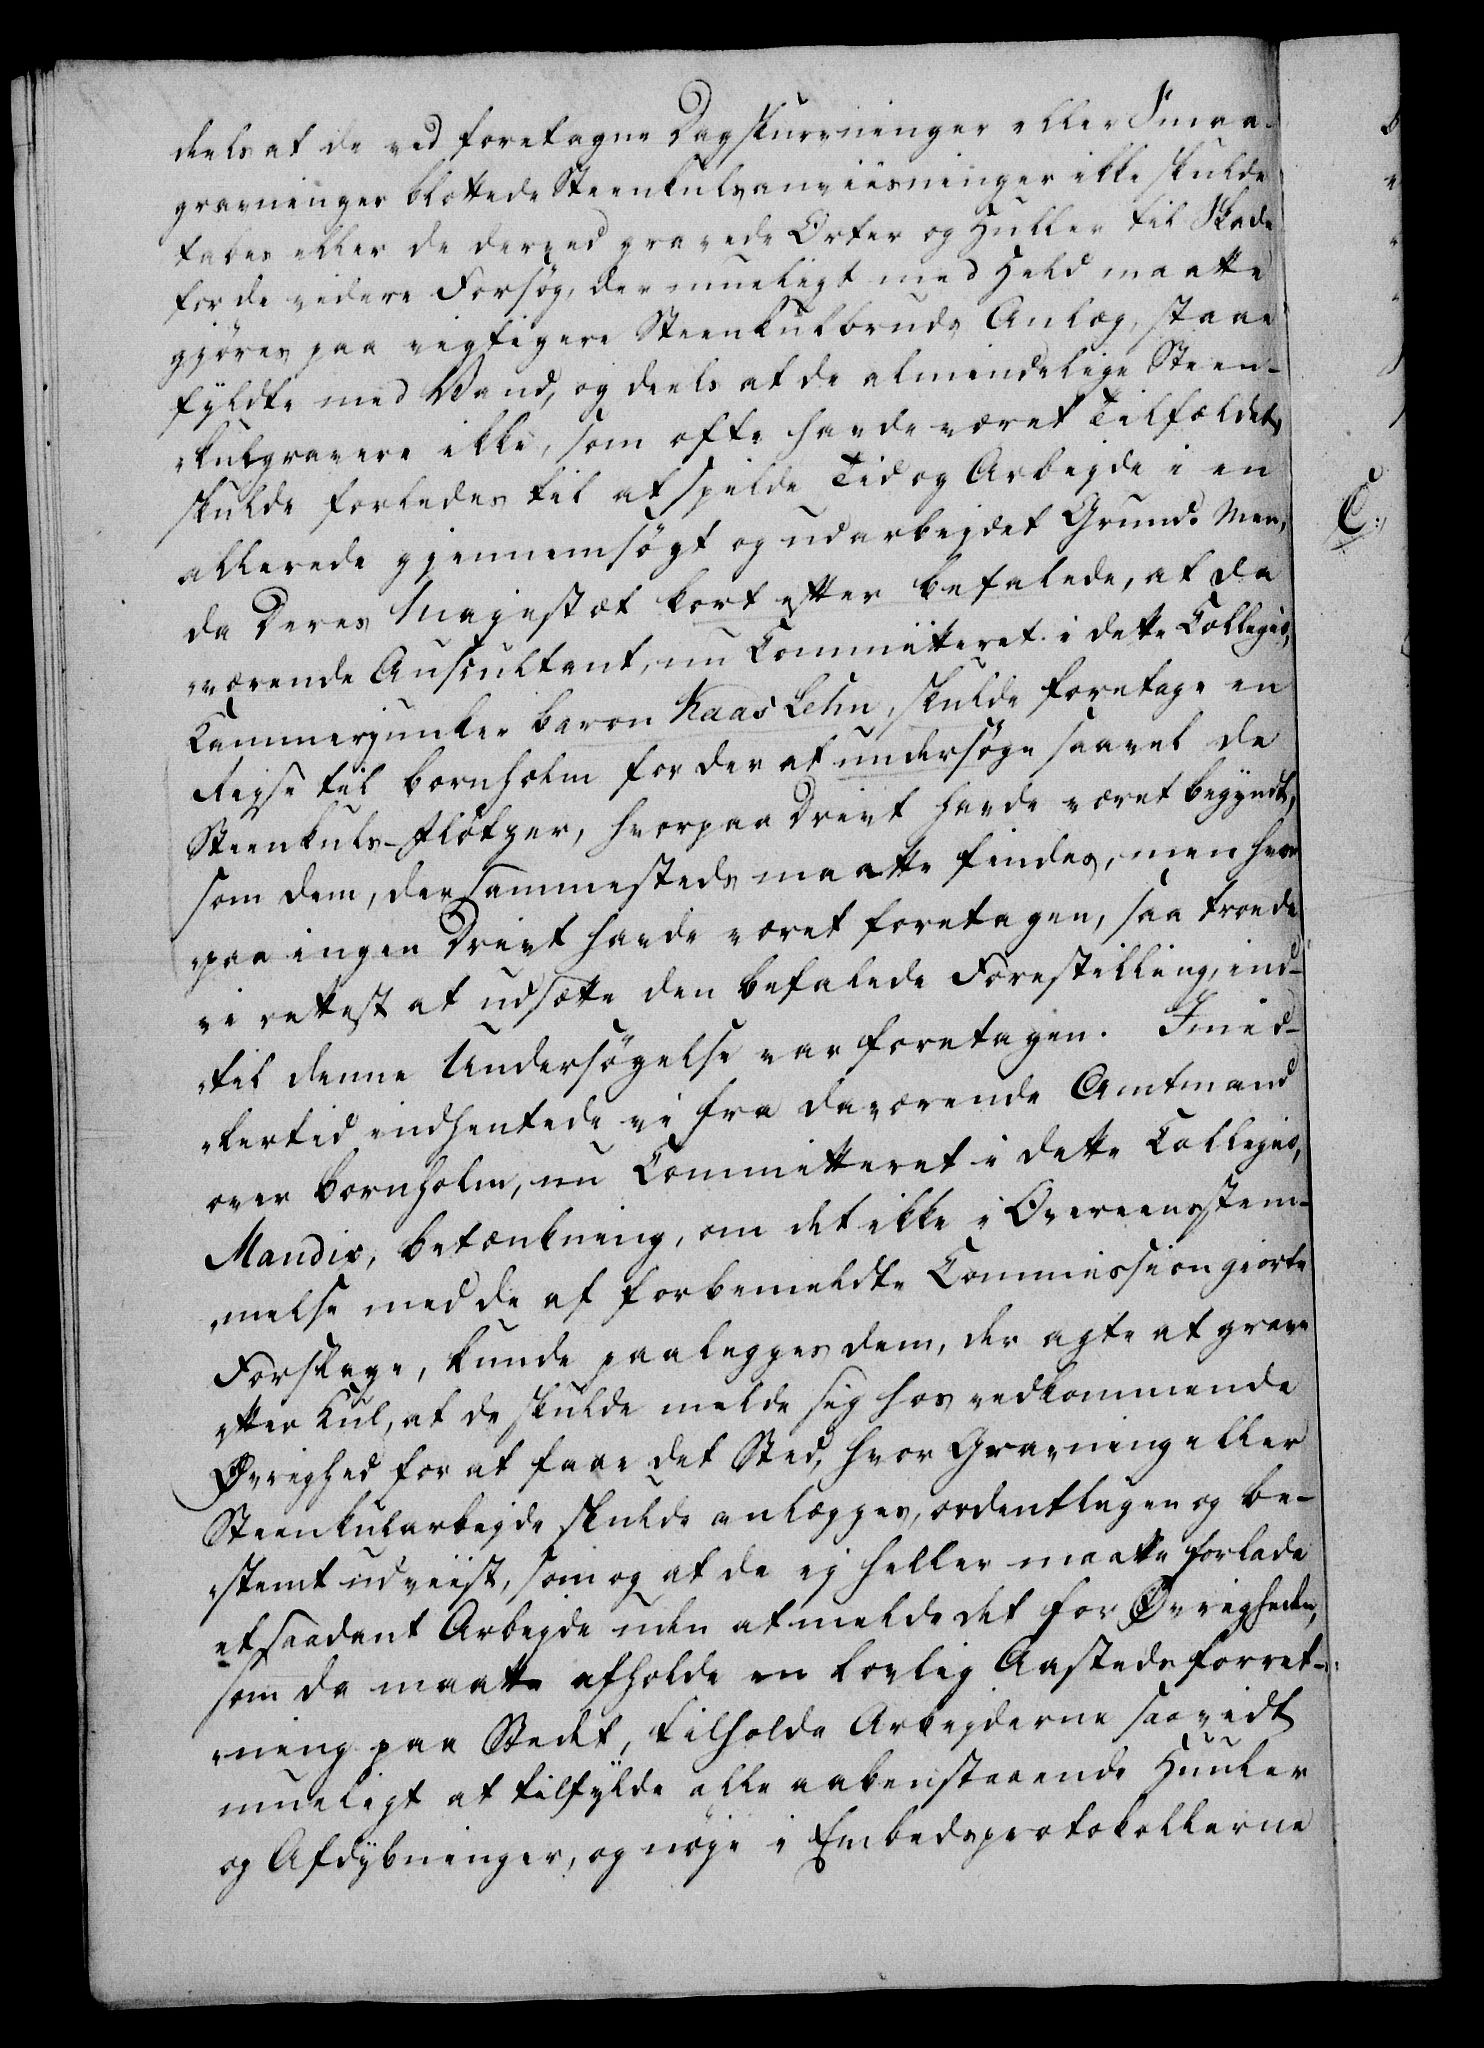 deels at de ved foretagne Dagskurvninger eller Smaa-
gravninger blottede Steenkulsanviisninger ikke skulde
tabes eller de derved gravede Orter og Huller til Skade
for de videre Forsøg, der mueligt med Held maatte
gjøres paa vigtigere Steenkulbruds Anlæg, staae
fyldte med Vand, og deels at de almindelige Steen-
kulgravere ikke, som ofte havde været Tilfældet,
skulde forledes til at spilde Tid og Arbejde i en
allerede gjennemsøgt og udarbejdet Grund. Men,
da Deres Majestæt kort efter befalede, at da
værende Auscultant, nu Committeret i dette Collegio,
Kammerjunker baron Kaas Lehn, skulde foretage en
Rejse til bornholm for der at undersøge saavel de
Steenkuls-Flötzer, hvorpaa Drivt havde været begyndt,
som dem, der sammesteds maatte findes, men hvor
paa ingen Drivt havde været foretagen, saa troede
vi rettest at udsætte den befalede Forestilling, ind-
til denne Undersøgelse var foretagen. Imid-
lertid indhentede vi fra daværende Amtmand
over bornholm, nu Committeret i dette Collegio,
Mandix, betænkning, om det ikke i Overeensstem-
melse med de af forbemeldte Commission giorte
Forslage, kunde paalegges dem, der agte at grave
efter Kul, at de skulde melde sig hos vedkommende
Øvrighed for at faae det Sted, hvor Gravning eller
Steenkularbejde skulde anlægges, ordentligen og be-
stemt udviist, som og at de ej heller maatte forlade
et saadant Arbejde uden at melde det for Øvrigheden,
som da maatte afholde en lovlig Aastedsforret-
ning paa Stedet, tilholde Arbejderne saavidt
mueligt at tilfylde alle aabenstaaende Huuler
og Afdybninger, og nøje i Embedsprotokollerne
C:,